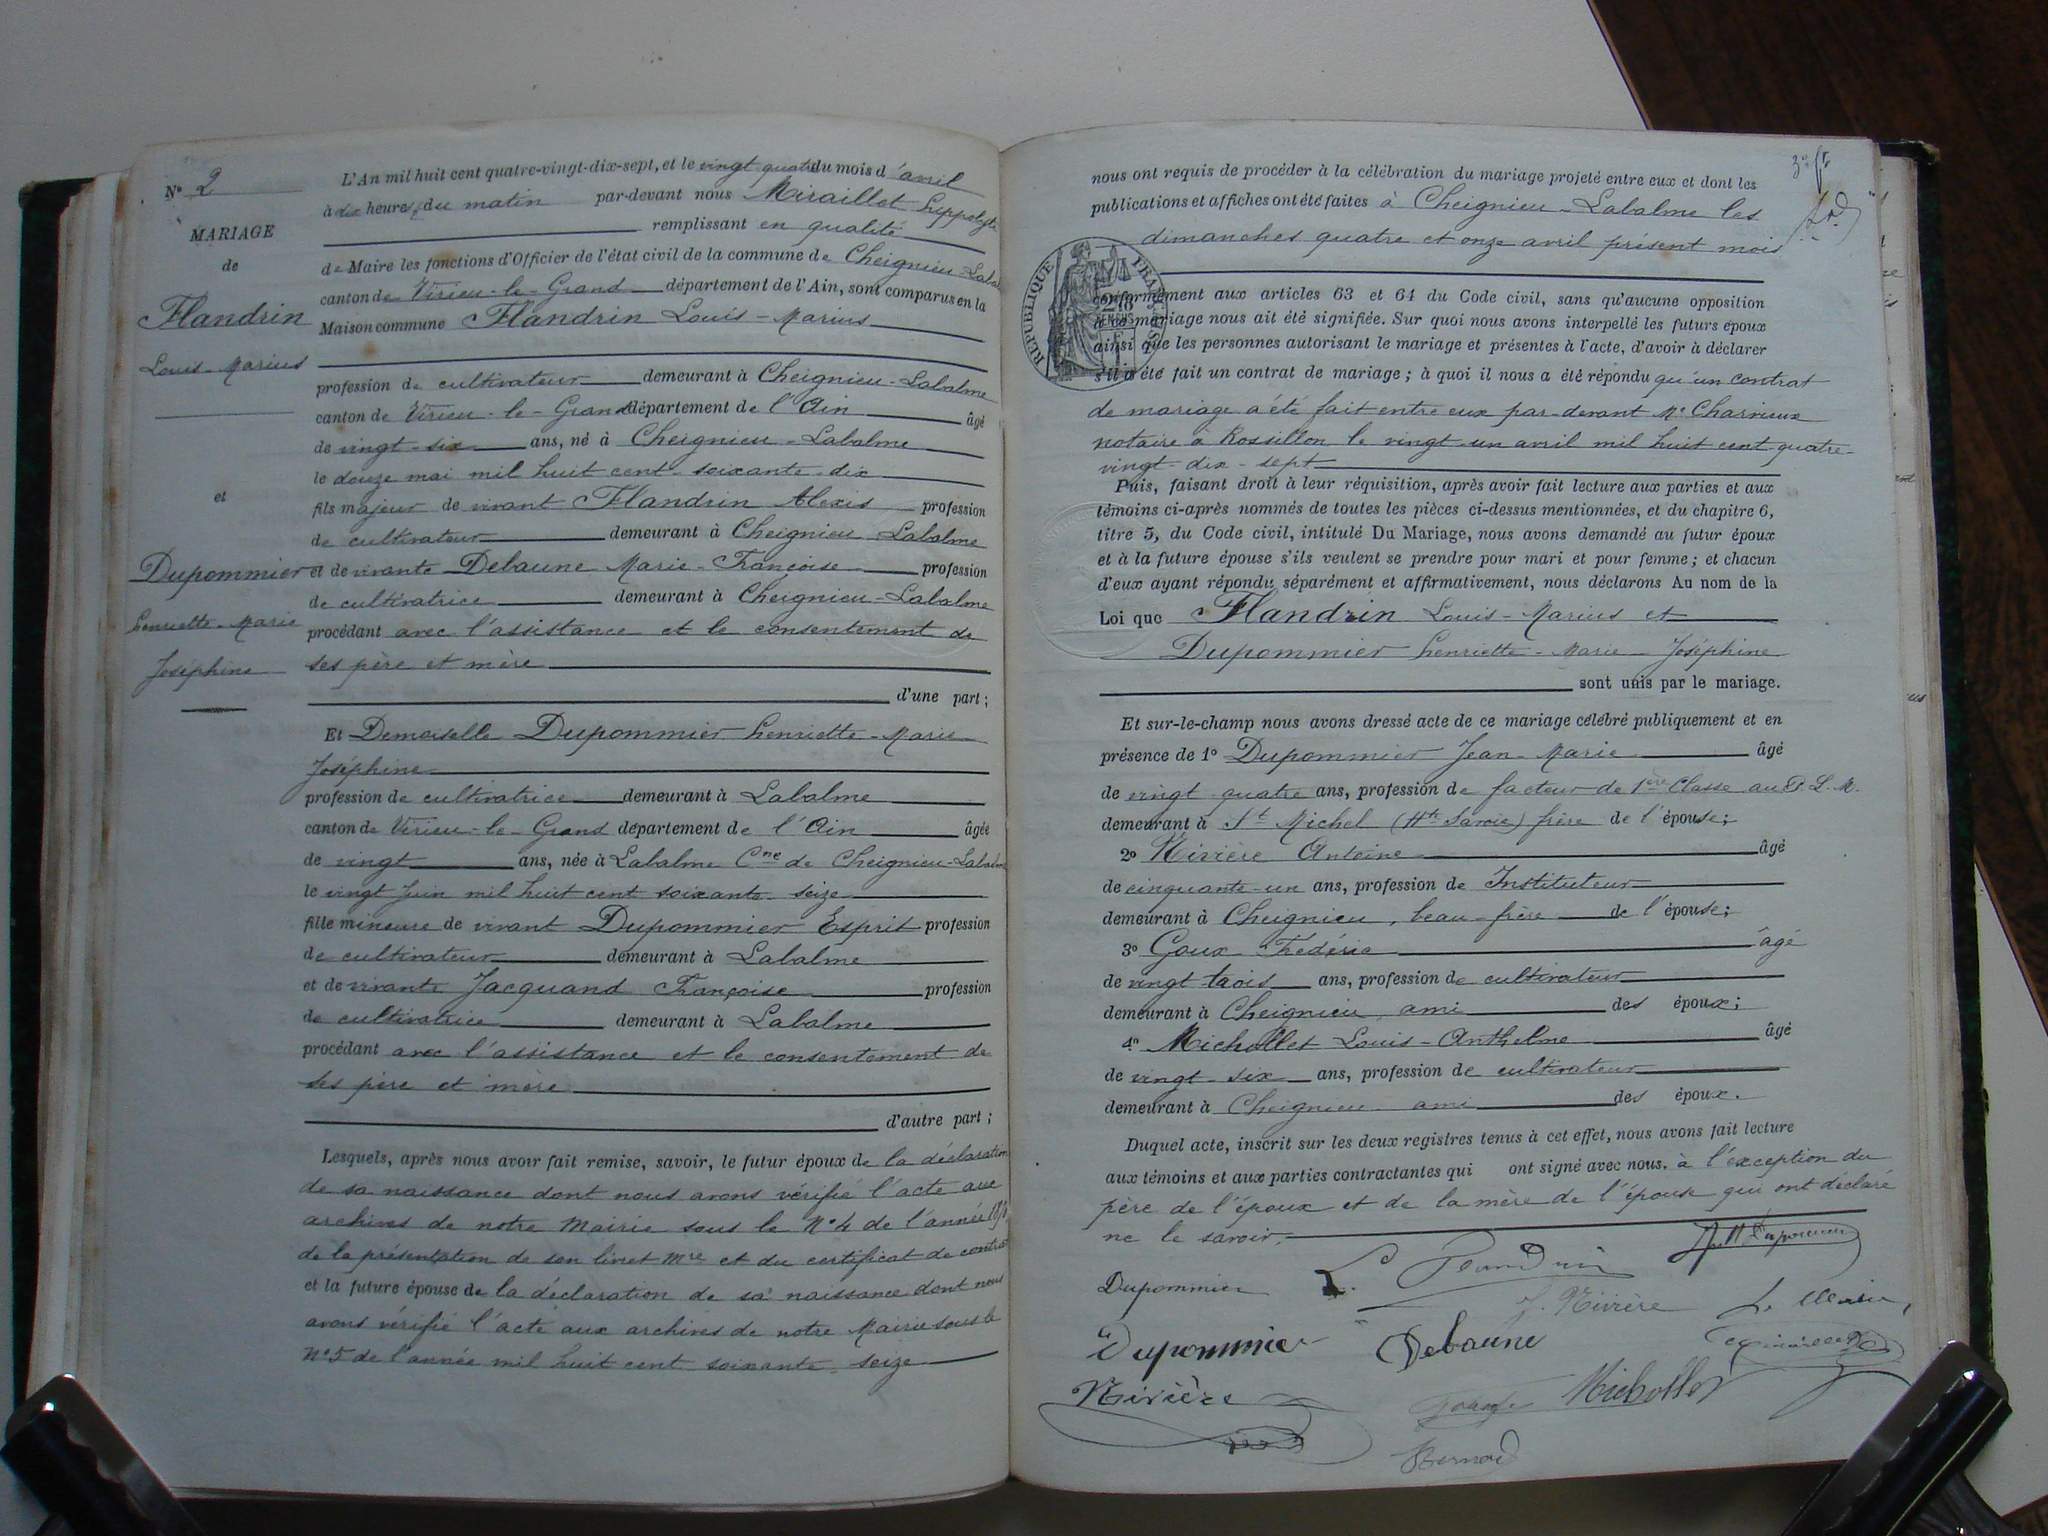 N° 2
MARIAGE
de
Flandrin
Louis-Marius
et
Dupommier
Henriette-Marie
Joséphine
L'An mil huit cent quatre-vingt-dix-sept, et le vingt quatre du mois d'avril
à dix heures du matin par-devant nous Miraillet Hyppolyte
remplissant en qualité
de Maire les fonctions d'Officier de l'état civil de la commune de Cheignieu-Labalme
canton de Virieu-le-Grand département de l'Ain, sont comparus en la
Maison commune Flandrin Louis-Marius
profession de cultivateur demeurant à Cheignieu-Labalme
canton de Virieu-le-Grand département de l'Ain âgé
de vingt-six ans, né à Cheignieu-Labalme
le douze mai mil huit cent soixante-dix
fils majeur de vivant Flandrin Alexis profession
de cultivateur demeurant à Cheignieu-Labalme
et de vivante Debaune Marie-Françoise profession
de cultivatrice demeurant à Cheignieu-Labalme
procédant avec l'assistance et le consentement de
ses père et mère
d'une part;
Et Demoiselle Dupommier Henriette-Marie
Joséphine
profession de cultivatrice demeurant à Labalme
canton de Virieu-le-Grand département de l'Ain âgée
de vingt ans, née à Labalme Cne de Cheignieu-Labalme
le vingt juin mil huit cent soixante-seize
fille mineure de vivant Dupommier Esprit profession
de cultivateur demeurant à Labalme
et de vivante Jacquand Françoise profession
de cultivatrice demeurant à Labalme
procédant avec l'assistance et le consentement de
ses père et mère
d'autre part;
Lesquels, après nous avoir fait remise, savoir, le futur époux de la déclaration
de sa naissance dont nous avons vérifié l'acte aux
archives de notre Mairie sous le N°4 de l'année 1870
de la présentation de son livret Mre et du certificat de contrat
et la future épouse de la déclaration de sa naissance dont nous
avons vérifié l'acte aux archives de notre Mairie sous le
N°5 de l'année mil huit cent soixante-seize
nous ont requis de procéder à la célébration du mariage projeté entre eux et dont les
publications et affiches ont été faites à Cheignieu-Labalme les
dimanches quatre et onze avril présent mois
RÉPUBLIQUE FRANÇAISE
conformément aux articles 63 et 64 du Code civil, sans qu'aucune opposition
à ce mariage nous ait été signifiée. Sur quoi nous avons interpellé les futurs époux
ainsi que les personnes autorisant le mariage et présentes à l'acte, d'avoir à déclarer
s'il a été fait un contrat de mariage; à quoi il nous a été répondu qu'un contrat
de mariage a été fait entre eux par-devant Me Charvieux
notaire à Rossillon le vingt-un avril mil huit cent quatre-
vingt-dix-sept
Puis, faisant droit à leur réquisition, après avoir fait lecture aux parties et aux
témoins ci-après nommés de toutes les pièces ci-dessus mentionnées, et du chapitre 6,
titre 5, du Code civil, intitulé Du Mariage, nous avons demandé au futur époux
et à la future épouse s'ils veulent se prendre pour mari et pour femme; et chacun
d'eux ayant répondu séparément et affirmativement, nous déclarons Au nom de la
Loi que Flandrin Louis-Marius et
Dupommier Henriette-Marie-Joséphine
sont unis par le mariage.
Et sur-le-champ nous avons dressé acte de ce mariage célébré publiquement et en
présence de 1° Dupommier Jean-Marie âgé
de vingt quatre ans, profession de facteur de 1ère Classe au P. L. M.
demeurant à St Michel (Hte Savoie) frère de l'épouse;
2° Rivière Antoine âgé
de cinquante-un ans, profession de Instituteur
demeurant à Cheignieu, beau-frère de l'épouse;
3° Goux Frédéric âgé
de vingt-trois ans, profession de cultivateur
demeurant à Cheignieu ami des époux;
4° Michollet Louis-Anthelme âgé
de vingt-six ans, profession de cultivateur
demeurant à Cheignieu ami des époux.
Duquel acte, inscrit sur les deux registres tenus à cet effet, nous avons fait lecture
aux témoins et aux parties contractantes qui ont signé avec nous. à l'exception du
père de l'époux et de la mère de l'épouse qui ont déclaré
ne le savoir.
L. Flandrin
Dupommier
J. Rivière
Dupommier
Debaune
Rivière
Michollet
Bernard